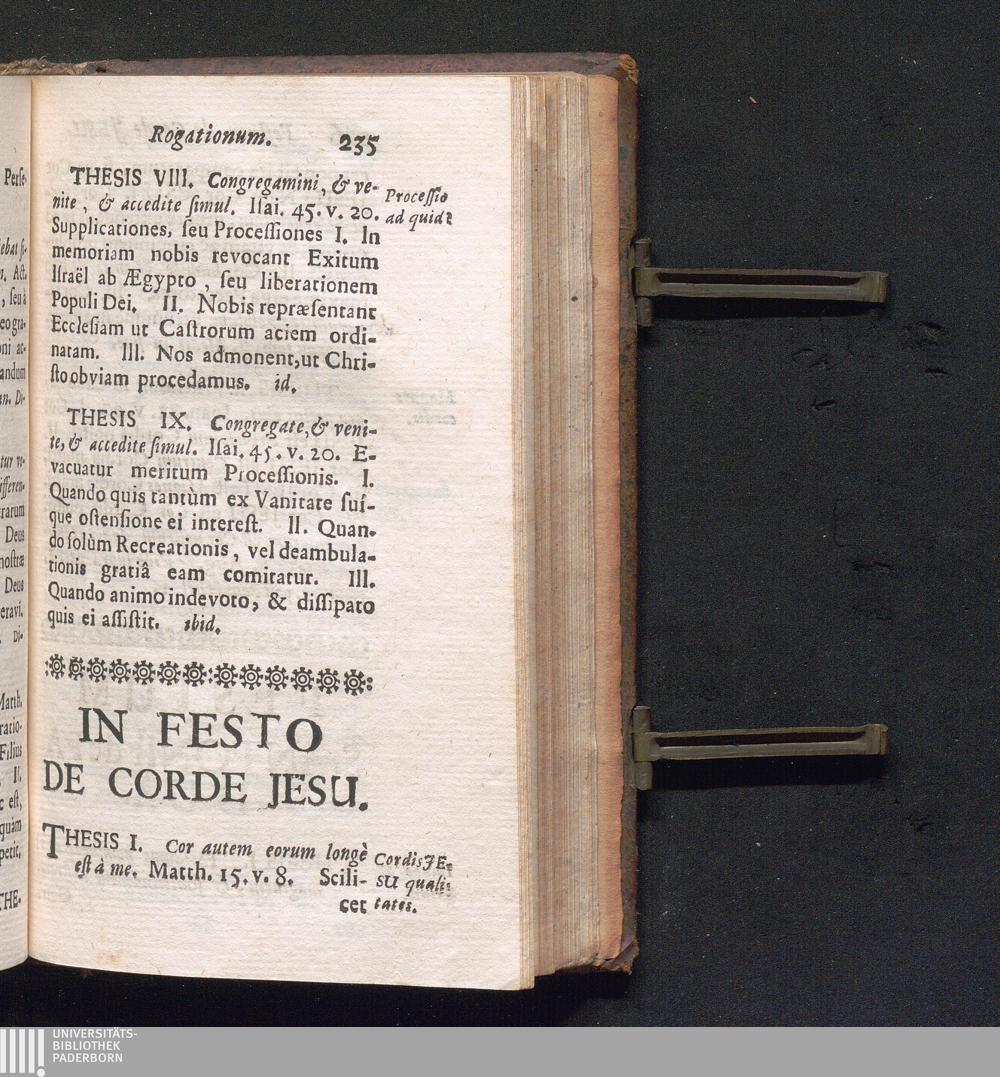 Rogationum. 235
THESIS VIII. Congregamini, & ve-
nite, & accedite ſimul. Iſai. 45. v. 20.
Proceſſio
ad quid?
Supplicationes, ſeu Proceſſiones I. In
memoriam nobis revocant Exitum
Iſraël ab Ægypto, ſeu liberationem
Populi Dei. II. Nobis repræſentant
Eccleſiam ut Caſtrorum aciem ordi-
natam. III. Nos admonent, ut Chri-
ſto obviam procedamus. id.
THESIS IX. Congregate, & veni-
te, & accedite ſimul. Iſai. 45. v. 20. E-
vacuatur meritum Proceſſionis. I.
Quando quis tantùm ex Vanitate ſuí-
que oſtenſione ei intereſt. II. Quan-
do ſolùm Recreationis, vel deambula-
tionis gratiâ eam comitatur. III.
Quando animo indevoto, & diſſipato
quis ei aſſiſtit. ibid.
IN FESTO
DE CORDE JESU.
THESIS I. Cor autem eorum longè
eſt à me. Matth. 15. v. 8. Scili-
cet
Cordis JE-
SU quali-
tates.
Perſe-
ebat ſi-
n. Act.
, ſeu à
eo gra-
oni ac-
andum
an. Di-
tur ve-
ifferen-
rarum
Deus
noſtræ
Deus
eravi.
. Di-
Matth.
ratio-
Filius
. II.
c eſt,
quàm
petit,
THE-
UNIVERSITÄTS-
BIBLIOTHEK
PADERBORN